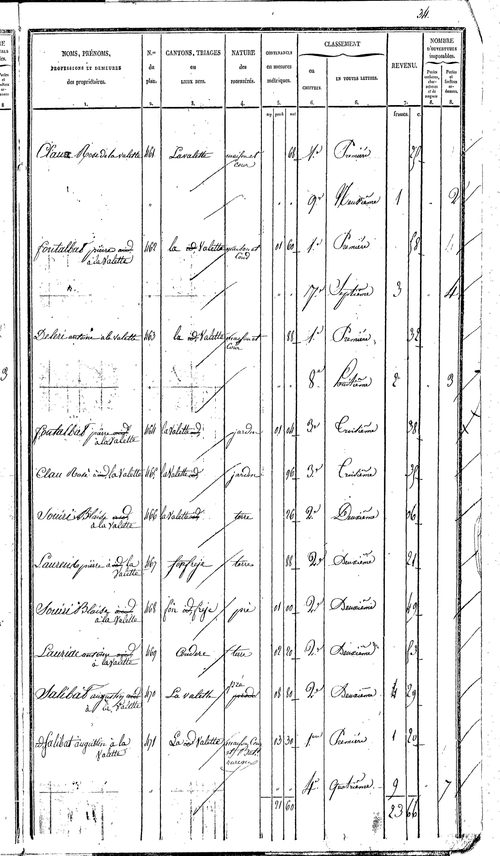 34.
NOMS, PRÉNOMS, PROFESSIONS ET DEMEURES des propriétaires.
N.os du plan.
CANTONS, TRIAGES ou LIEUX DITS.
NATURE des
CONTENANCE en mesures métriques.
CLASSEMENT
en CHIFFRES.
EN TOUTES LETTRES.
REVENU.
NOMBRE D'OUVERTURES imposables.
1. 2. 3. 4. 5. 6. 6. 7. 8. 8.
francs. c.
Clau Rose de la Valette 461 Lavalette maison et cour 68 1re Première
9e Neuvième 1 2
fontalbat pierre à la Valette 462 la Valette maison et 01 60 1re Première 58
7e Septième 3 4
Deleri antoine à la Valette 463 la Valette maison et cour 88 1re Première 32
8e huitième 2 3
fontalbat pierre à la Valette 464 la Valette jardin 01 04 3e Troisième 38
Clau Rose à la Valette 465 la Valette jardin 96 3e Troisième 35
Souiri Blaise à la Valette 466 la Valette terre 26 2e Deuxième 06
pierre à la Valette 467 terre 88 2e Deuxième 21
Souiri Blaise à la Valette 468 pré 01 00 2e Deuxième 49
antoine à la Valette 469 Coudere terre 02 20 2e Deuxième 53
Salibat augustin à la Valette 470 La Valette pré 08 80 2e Deuxième 4 29
Salibat augustin à la Valette 471 La Valette 03 30 1re Première 1 20
4e quatrième 9 7
21 60
23 66